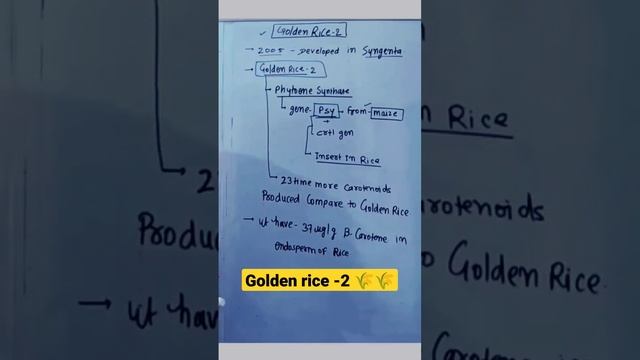 Golden Rice-2
→ 2005 - Developed in Syngenta
→ Golden Rice-2
Phytoene Synthase
gene- Psy → from- maize
crtl gen
Insert in Rice
→ 23 time more carotenoids
Produced Compare to Golden Rice
→ have - 37 ug/g B. Carotene in
endosperm of Rice
Golden rice -2 🌾🌾
n Rice
23
arotenoids
Produc
o Golden Rice
→ have